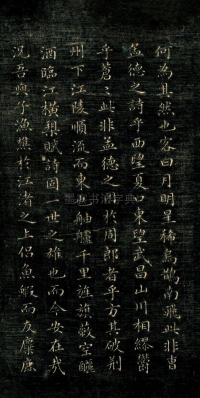 何為其然也客曰月明星稀烏鵲南飛此非曹
孟德之詩乎西望夏口東望武昌山川相繆鬱
乎蒼〻此非孟德之困於周郎者乎方其破荆
州下江陵順流而東也舳艫千里旌旗蔽空釃
酒臨江橫槊賦詩固一世之雄也而今安在哉
況吾與子漁樵於江渚之上侶魚蝦而友麋鹿